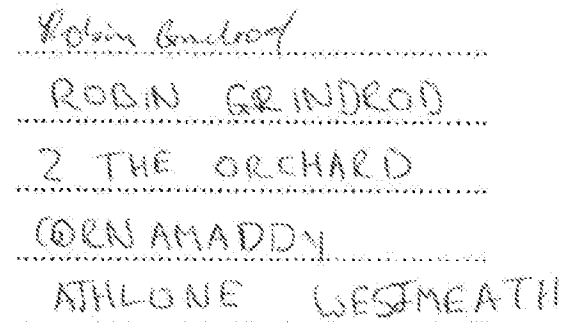 Robin Grindrod
ROBIN GRINDROD
2 THE ORCHARD
CORNAMADDY
ATHLONE WESTMEATH